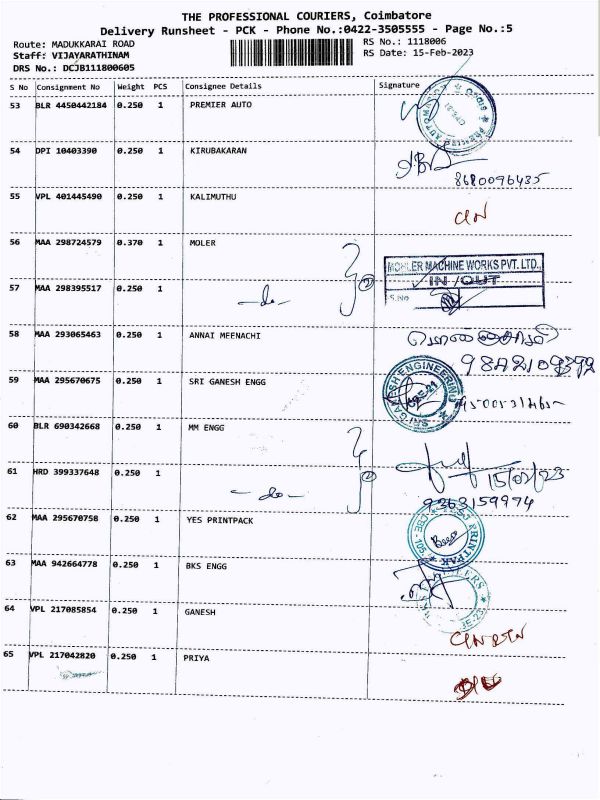 THE PROFESSIONAL COURIERS, Coimbatore
Delivery Runsheet - PCK - Phone No.:0422-3505555 - Page No.:5
Route: MADUKKARAI ROAD
RS No.: 1118006
Staff: VIJAYARATHINAM
RS Date: 15-Feb-2023
DRS No.: DCJB111800605
S No Consignment No Weight PCS Consignee Details Signature
53 BLR 4450442184 0.250 1 PREMIER AUTO
54 DPI 10403390 0.250 1 KIRUBAKARAN
8680096435
55 VPL 401445490 0.250 1 KALIMUTHU
56 MAA 298724579 0.370 1 MOLER
MOHLER MACHINE WORKS PVT. LTD.,
IN / OUT
S.No
57 MAA 298395517 0.250 1 -do-
58 MAA 293065463 0.250 1 ANNAI MEENACHI
59 MAA 295670675 0.250 1 SRI GANESH ENGG
SRI GANESH ENGINEERING
60 BLR 690342668 0.250 1 MM ENGG
15/02/23
61 HRD 399337648 0.250 1 -do-
9363159974
62 MAA 295670758 0.250 1 YES PRINTPACK
63 MAA 942664778 0.250 1 BKS ENGG
64 VPL 217085854 0.250 1 GANESH
65 VPL 217042820 0.250 1 PRIYA